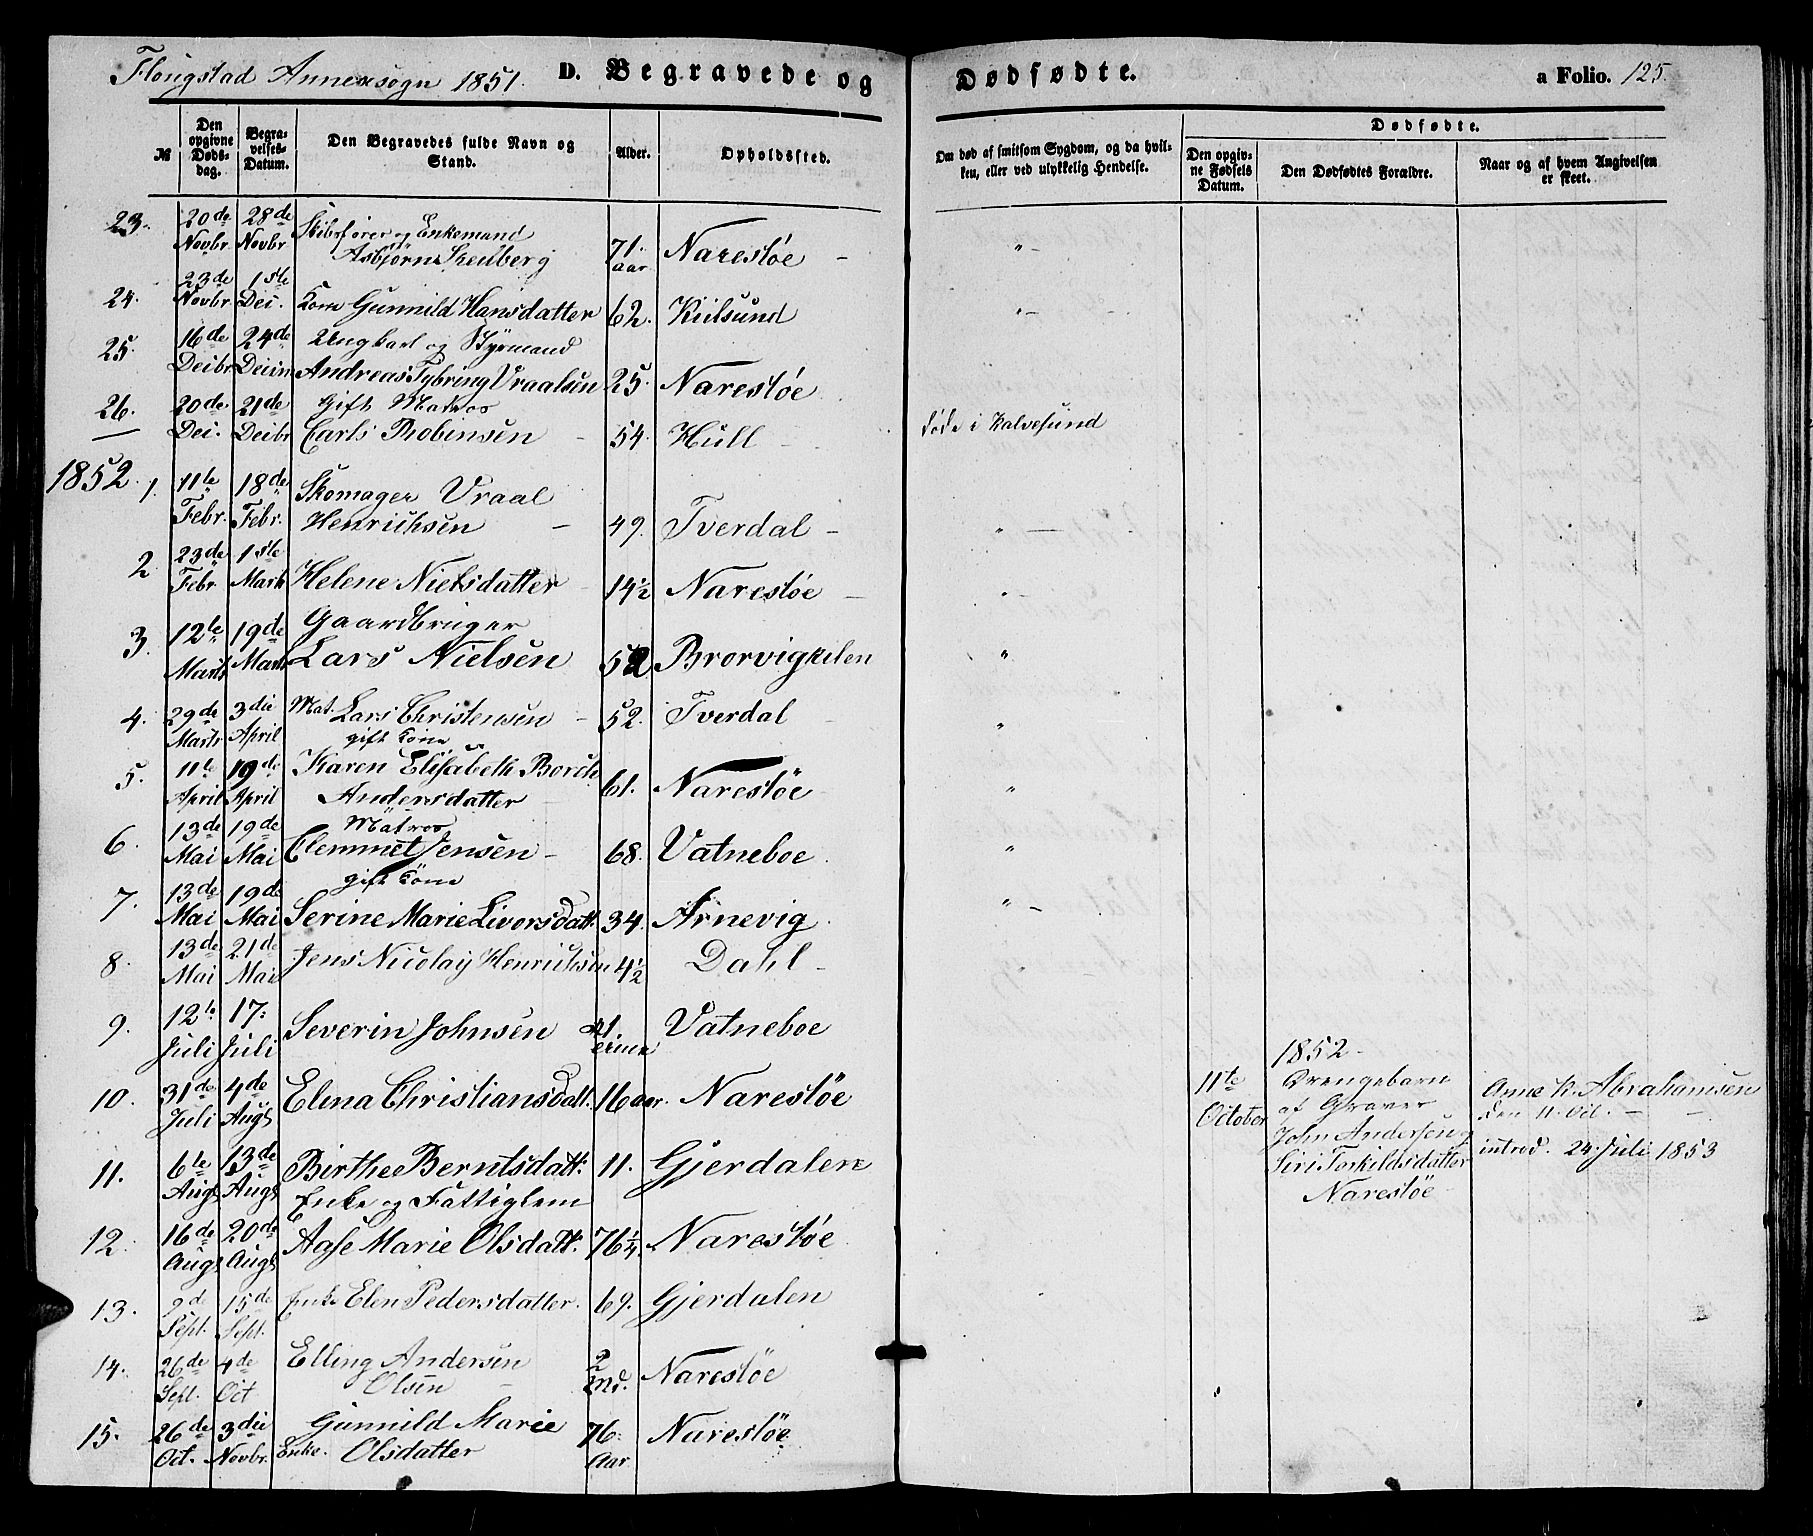 Flougstad Annexsogn 1851. D. Begravede og Dødfødte. a Folio. 125.
№ Den opgivne Døds-dag. Begra-velses-Datum. Den Begravedes fulde Navn og Stand. Alder. Opholdssted. Om død af smitsom Sygdom, og da hvil-ken, eller ved ulykkelig Hendelse. Dødfødte.
Den opgiv-ne Fødsels Datum. Den Dødfødtes Forældre. Naar og af hvem Angivelsen er skeet.
23. 20de Novbr. 28de Novbr Skibsfører og Enkemand
Asbjørn 71. aar Narestøe - " -
24. 23de Novbr 1ste Dec. Kone Gunnild Hansdatter 62. Kiilsund " -
25. 16de Decbr 24de Ungkarl og Styrmand
Andreas Tybring Vraalsen 25. Narestøe
26. 20de Dec. 21de Decbr Gift Matros
Carls Robinsen - 54. Hull - døde i Kalvesund
1852. 1. 11te Febr. 18de Febr. Skomager Vraal
Henrichsen - 49. Tverdal - " -
2 23de Febr 1ste Marts Helene Nielsdatter - 14½ Narestøe - " -
3. 12te Marts 19de Marts Gaardbruger
Lars Nielsen 52 Brorvigkilen "
4. 29de Marts 3die April Mat. Lars Christensen - 52. Tverdal - "
5. 11te April 19de April gift Kone
Karen Elisabeth Borch
Andersdatter 61. Narestøe - "
6. 13de Mai 19de Mai Matros
Clemmet Jensen - 68. Vatneboe. "
7. 13de Mai 19de Mai gift Kone
Serine Marie Livorsdatt. 34. Arnevig. " -
8. 13de Mai 21de Mai Jens Nicolay Henrichsen 4½ Dahl - "
9. 12te Juli 17. Juli Severin Johnsen Vatneboe
10. 31de Juli 4de Augt Elina Christiansdatt. 16 aar. Narestøe
11te October 1852.
Drengebarn
af Graver
John Andersen og
Siri Torkildsdatter
Narestøe
Anne K. Abrahamsen
den 11. Oct. - -
introd. 24 Juli 1853
11. 6te Augt 13de Augt Birthe Berntsdatt. 11. Gjerdalen
12. 16de Augt 20de Augt Enke og Fattiglem
Aase Marie Olsdatt. 76¼. Narestøe
13. 9de Sept. 15de Sept. Enke Elen Pedersdatter. 69. Gjerdalen
14. 26de Sept. 4de Oct Elling Andersen
Olsen - 2 Md. Narestøe
15. 26de Oct. 3die Novbr. Gunnild Marie
Enke. Olsdatter 76. Aar. Narestøe